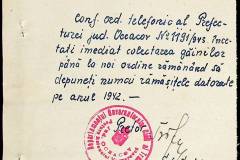 Conf. ord. telefonic al Prefec-
turei jud. Oceacov Nº 1191/prs. Înce-
tati imediat colectarea găinilor
până la noi ordine rămânând să
depuneți numai rămășițele datorate
pe anul 1942. -
Pretor